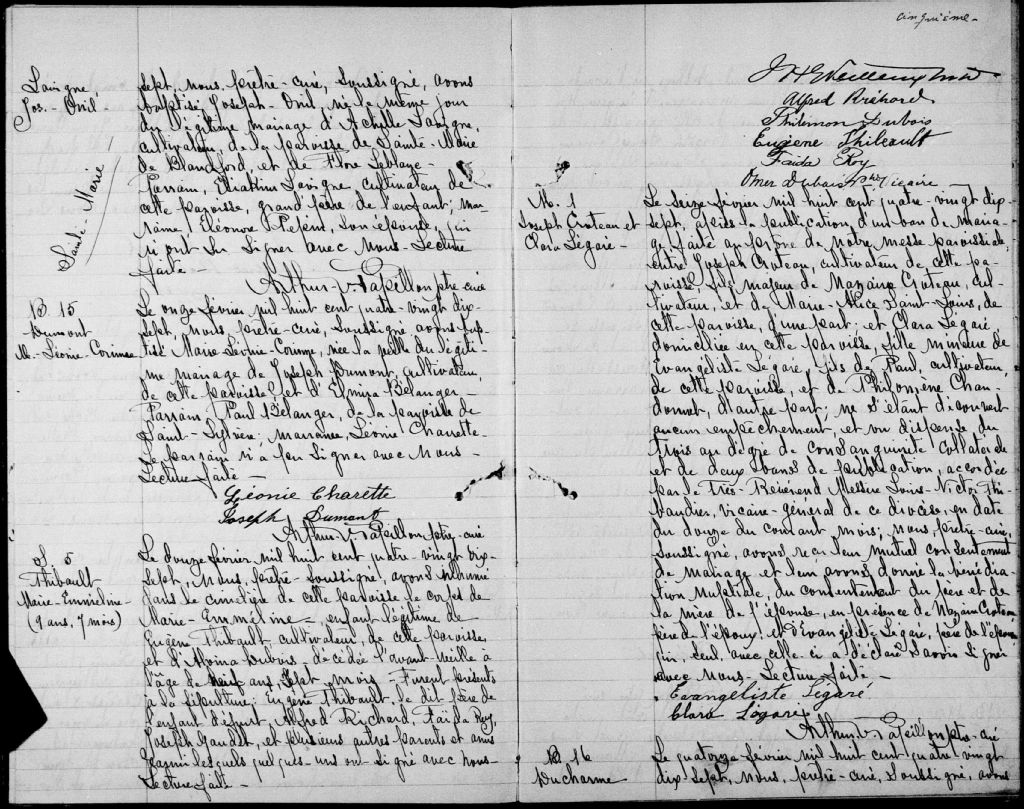 Lavigne
Jos.- Onil
Sainte-Marie
sept, nous, prêtre-curé, soussigné, avons
baptisé Joseph-Onil, né le même jour
du légitime mariage d'Achille Lavigne,
cultivateur, de la paroisse de Sainte-Marie
de Blandford, et de Flore Leblanc-
Parrain, Eliakim Lavigne, cultivateur de
cette paroisse, grand père de l'enfant; mar-
raine, Eléonore Pépin, son épouse, qui
n'ont su signer avec nous- Lecture
faite-
Arthur-V. Papillon ptre-curé
B 15
Dumont
M.-Léonie-Corinne
Le onze février mil huit cent quatre-vingt dix-
sept, nous, prêtre-curé, soussigné avons bap-
tisé Marie-Léonie-Corinne, née la veille du légiti-
me mariage de Joseph Dumont, cultivateur,
de cette paroisse, et d'Elmira Bélanger-
Parrain, Paul Bélanger, de la paroisse de
Saint-Sylvère; marraine, Léonie Charette-
Le parrain n'a pu signer avec nous-
Lecture faite-
Léonie Charette
Joseph Dumont
Arthur-V. Papillon ptre-curé
S 5
Thibault
Marie-Emméline-
(9 ans, 7 mois)
Le douze février mil huit cent quatre-vingt dix-
sept, nous, prêtre-soussigné, avons inhumé
dans le cimetière de cette paroisse le corps de
Marie-Emméline-, enfant légitime de
Eugène Thibault, cultivateur, de cette paroisse,
et d'Alvina Dubois, décédée l'avant-veille à
l'âge de neuf ans, sept mois- Furent présents
à la sépulture: Eugène Thibault, le dit père de
l'enfant défunt, Alfred Richard, Faida Roy,
Joseph Gaudet, et plusieurs autres parents et amis
parmi lesquels quelques-uns ont signé avec nous-
Lecture faite-
cinquième-
Alfred Richard
Philémon Dubois
Eugène Thibeault
Faida Roy
Omer Dubois Ptre Vicaire
M. 1
Joseph Croteau et
Clara Légaré-
Le seize février mil huit cent quatre-vingt dix-
sept, après la publication d'un ban de maria-
ge faite au prône de notre messe paroissiale,
entre Joseph Croteau, cultivateur de cette pa-
roisse, fils majeur de Nazaire Croteau, cul-
tivateur, et de Marie-Alice Saint-Louis, de
cette paroisse, d'une part; et Clara Légaré
domiciliée en cette paroisse, fille mineure de
Evangéliste Légaré, fils de Paul, cultivateur,
de cette paroisse, et de Philomène Chan-
donnet, d'autre part; ne s'étant découvert
aucun empêchement, et vu dispense du
trois au degré de consanguinité collatérale
et de deux bans de publication, accordée
par le Très-Révérend Messire Louis-Victor Thi-
baudier, vicaire-général de ce diocèse, en date
du douze du courant mois; nous, prêtre-curé,
soussigné, avons reçu leur mutuel consentement
de mariage et leur avons donné la bénédic-
tion nuptiale, du consentement du père et de
la mère de l'épouse, en présence de Nazaire Croteau
père de l'époux, et d'Evangéliste Légaré, père de l'épouse
qui, seul, avec celle-ci a déclaré savoir signer
avec nous- Lecture faite-
Evangeliste Légaré
Clara Légaré
Arthur-V. Papillon ptre-curé
B 16
Ducharme
Le quatorze février mil huit cent quatre-vingt
dix-sept, nous, prêtre-curé, soussigné, avons